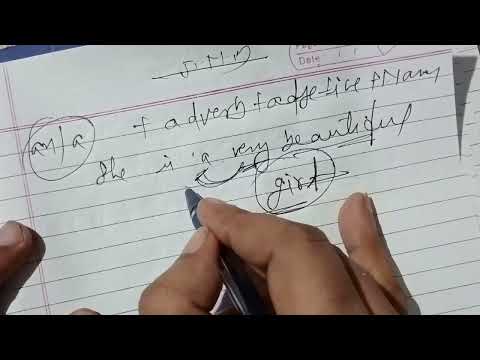 Date
an/a + adverb + adjective + Noun
She is a very beautiful
girl